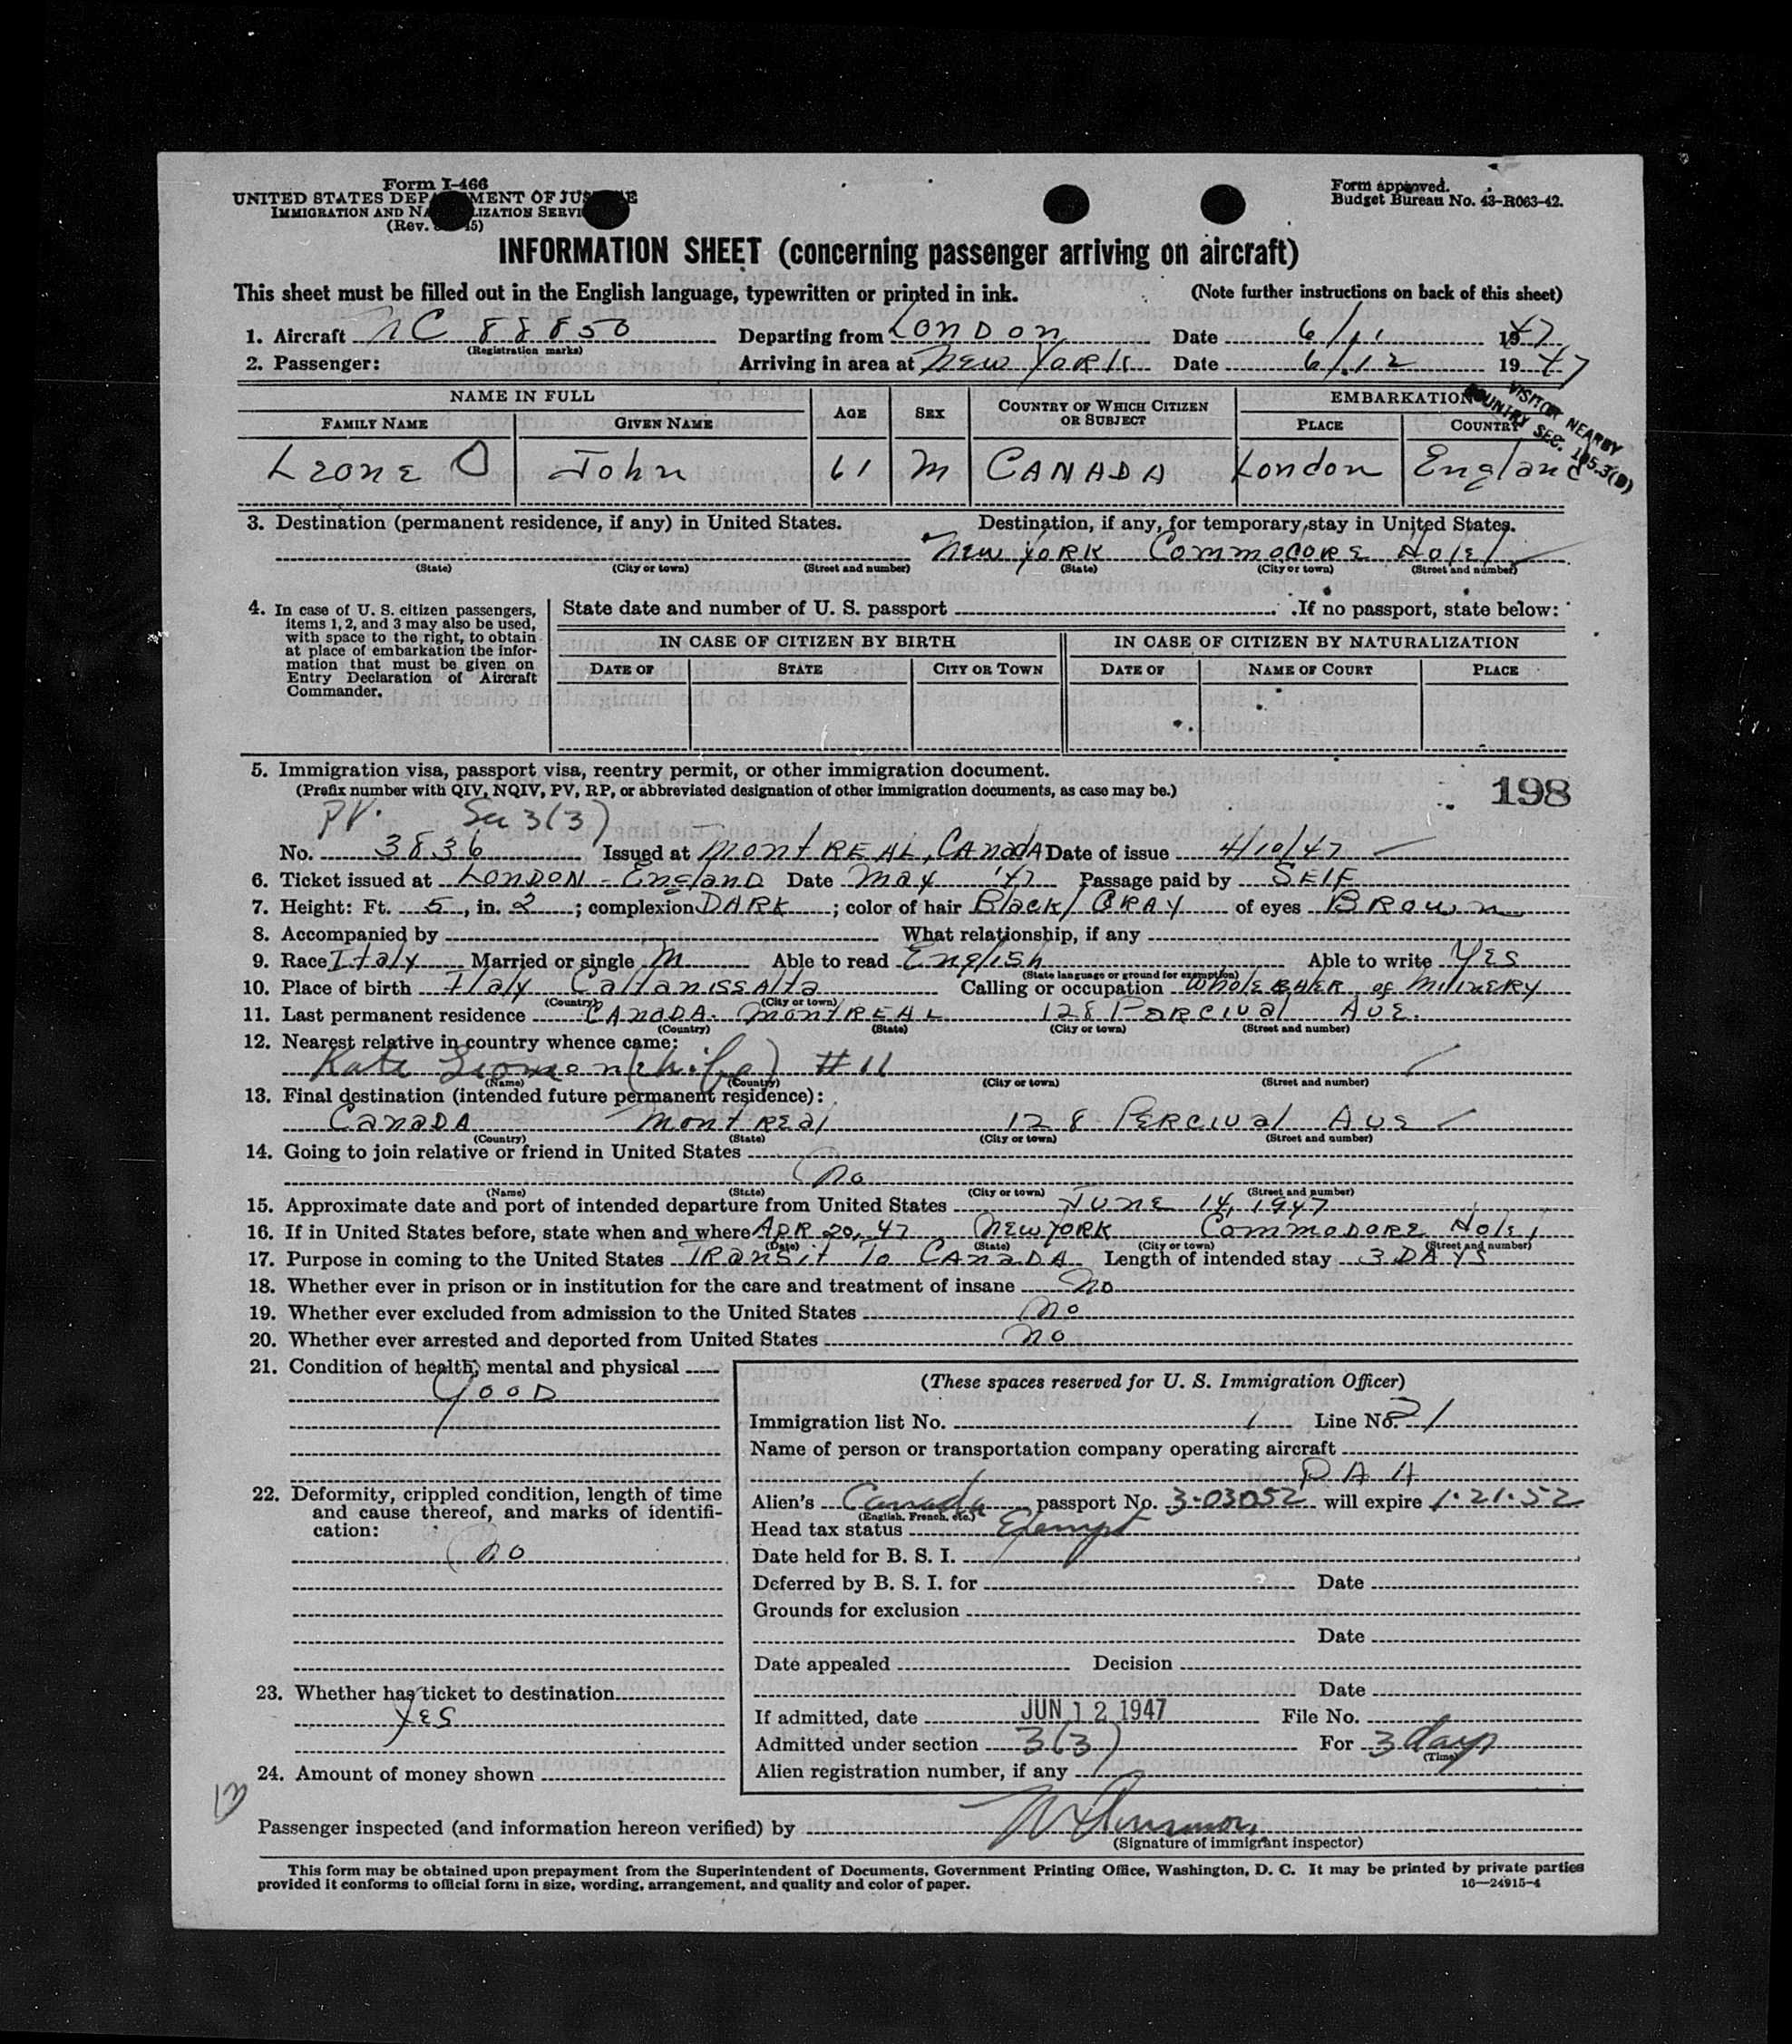 Form I-466
UNITED STATES DEPARTMENT OF JUSTICE
IMMIGRATION AND NATURALIZATION SERVICE
(Rev. 45)
Form approved.
Budget Bureau No. 43-R063-42.
INFORMATION SHEET (concerning passenger arriving on aircraft)
This sheet must be filled out in the English language, typewritten or printed in ink. (Note further instructions on back of this sheet)
1. Aircraft NC 88850 Departing from London Date 6/11 1947
(Registration marks)
2. Passenger: Arriving in area at New York Date 6/12 1947
VISITOR NEARBY
COUNTRY SEC. 195.3(B)
NAME IN FULL AGE SEX COUNTRY OF WHICH CITIZEN OR SUBJECT EMBARKATION
FAMILY NAME GIVEN NAME PLACE COUNTRY
Leone John 61 M CANADA London England
3. Destination (permanent residence, if any) in United States. Destination, if any, for temporary stay in United States.
New York Commodore Hotel
(State) (City or town) (Street and number) (State) (City or town) (Street and number)
4. In case of U. S. citizen passengers, items 1, 2, and 3 may also be used, with space to the right, to obtain at place of embarkation the information that must be given on Entry Declaration of Aircraft Commander.
State date and number of U. S. passport If no passport, state below:
IN CASE OF CITIZEN BY BIRTH IN CASE OF CITIZEN BY NATURALIZATION
DATE OF STATE CITY OR TOWN DATE OF NAME OF COURT PLACE
5. Immigration visa, passport visa, reentry permit, or other immigration document. 198
(Prefix number with QIV, NQIV, PV, RP, or abbreviated designation of other immigration documents, as case may be.)
PV. Sec 3(3)
No. 3836 Issued at Montreal, Canada Date of issue 4/10/47
6. Ticket issued at London - England Date May '47 Passage paid by SELF
7. Height: Ft. 5, in. 2; complexion DARK; color of hair Black/GRAY of eyes Brown
8. Accompanied by What relationship, if any
9. Race Italy Married or single M Able to read English Able to write YES
(State language or ground for exemption)
10. Place of birth Italy Caltanissatta Calling or occupation of MILINERY
(Country) (City or town)
11. Last permanent residence CANADA. MONTREAL 128 Percival Ave.
(Country) (State) (City or town) (Street and number)
12. Nearest relative in country whence came:
Kate (wife) #11
(Name) (Country) (City or town) (Street and number)
13. Final destination (intended future permanent residence):
CANADA Montreal 128 Percival Ave
(Country) (State) (City or town) (Street and number)
14. Going to join relative or friend in United States
No
(Name) (State) (City or town) (Street and number)
15. Approximate date and port of intended departure from United States JUNE 14, 1947
16. If in United States before, state when and where APR 20, 47 New York Commodore Hotel
(Date) (State) (City or town) (Street and number)
17. Purpose in coming to the United States Transit To CANADA Length of intended stay 3 DAYS
18. Whether ever in prison or in institution for the care and treatment of insane No
19. Whether ever excluded from admission to the United States No
20. Whether ever arrested and deported from United States No
21. Condition of health, mental and physical
GOOD
22. Deformity, crippled condition, length of time and cause thereof, and marks of identification:
No
23. Whether has ticket to destination
YES
24. Amount of money shown
(These spaces reserved for U. S. Immigration Officer)
Immigration list No. 1 Line No. 21
Name of person or transportation company operating aircraft
P A A
Alien's Canada passport No. 3-03052 will expire 1-21-52
(English, French, etc.)
Head tax status Exempt
Date held for B. S. I.
Deferred by B. S. I. for Date
Grounds for exclusion
Date
Date appealed Decision
Date
If admitted, date JUN 12 1947 File No.
Admitted under section 3(3) For 3 days
(Time)
Alien registration number, if any
Passenger inspected (and information hereon verified) by
(Signature of immigrant inspector)
This form may be obtained upon prepayment from the Superintendent of Documents, Government Printing Office, Washington, D. C. It may be printed by private parties
provided it conforms to official form in size, wording, arrangement, and quality and color of paper. 16—24915-4